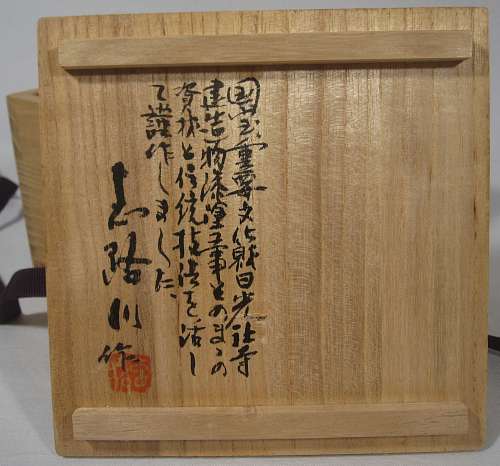 国宝重要文化財日光社寺
建造物漆塗工事そのまゝの
資材と伝統技法を活し
て謹作しました、
志路川作